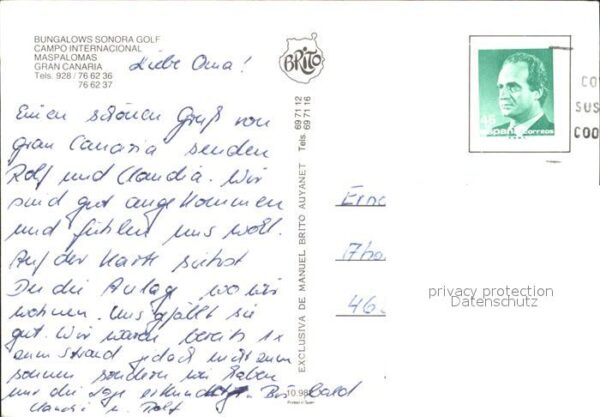 BUNGALOWS SONORA GOLF
CAMPO INTERNACIONAL
MASPALOMAS
GRAN CANARIA
Tels. 928 / 76 62 36
76 62 37
Liebe Oma!
Einen schönen Gruß von
gran Canaria senden
Rolf und Claudia. Wir
sind gut angekommen
und fühlen uns wohl.
Auf der Karte siehst
Du die Anlage, wo wir
wohnen. Uns gefällt sie
gut. Wir waren bereits 1x
am Strand jedoch nicht zum
sonnen sondern wir haben
nur die Lage erkundet. Bis bald
Claudia u. Rolf
BRITO
EXCLUSIVA DE MANUEL BRITO AUYANET Tels. 69 71 12
69 71 16
10.98
45
España correos
CO
SUS
COO
Erne
Tho
46
privacy protection
Datenschutz